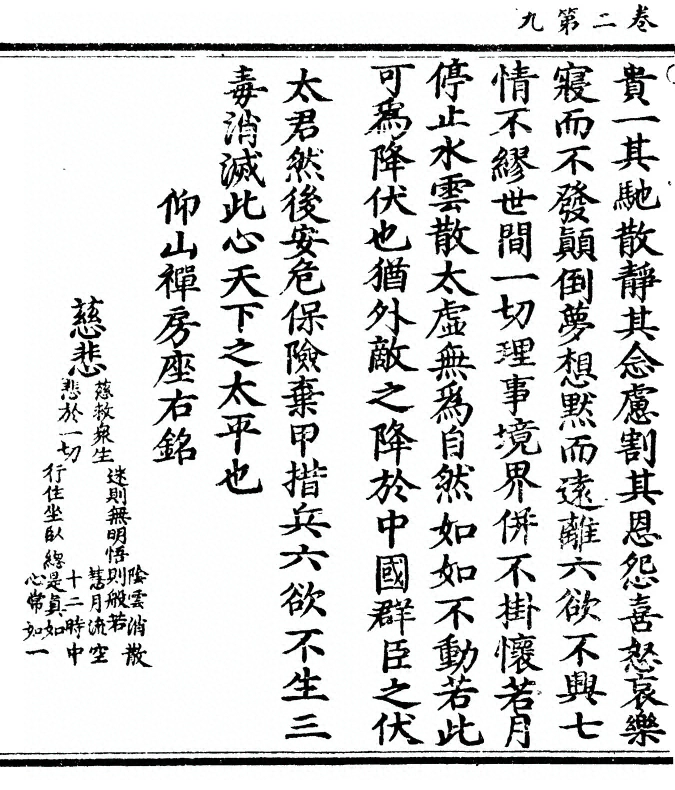 卷二第九
貴一其馳散靜其念慮割其恩怨喜怒哀樂
寢而不發顛倒夢想默而遠離六欲不興七
情不繆世間一切理事境界併不掛懷若月
停止水雲散太虛無爲自然如如不動若此
可爲降伏也猶外敵之降於中國群臣之伏
太君然後安危保險棄甲措兵六欲不生三
毒消滅此心天下之太平也
仰山禪房座右銘
慈悲
慈救衆生
悲於一切
迷則無明悟則般若
行住坐臥總是真如
陰雲消散
慧月流空
十二時中
心常如一